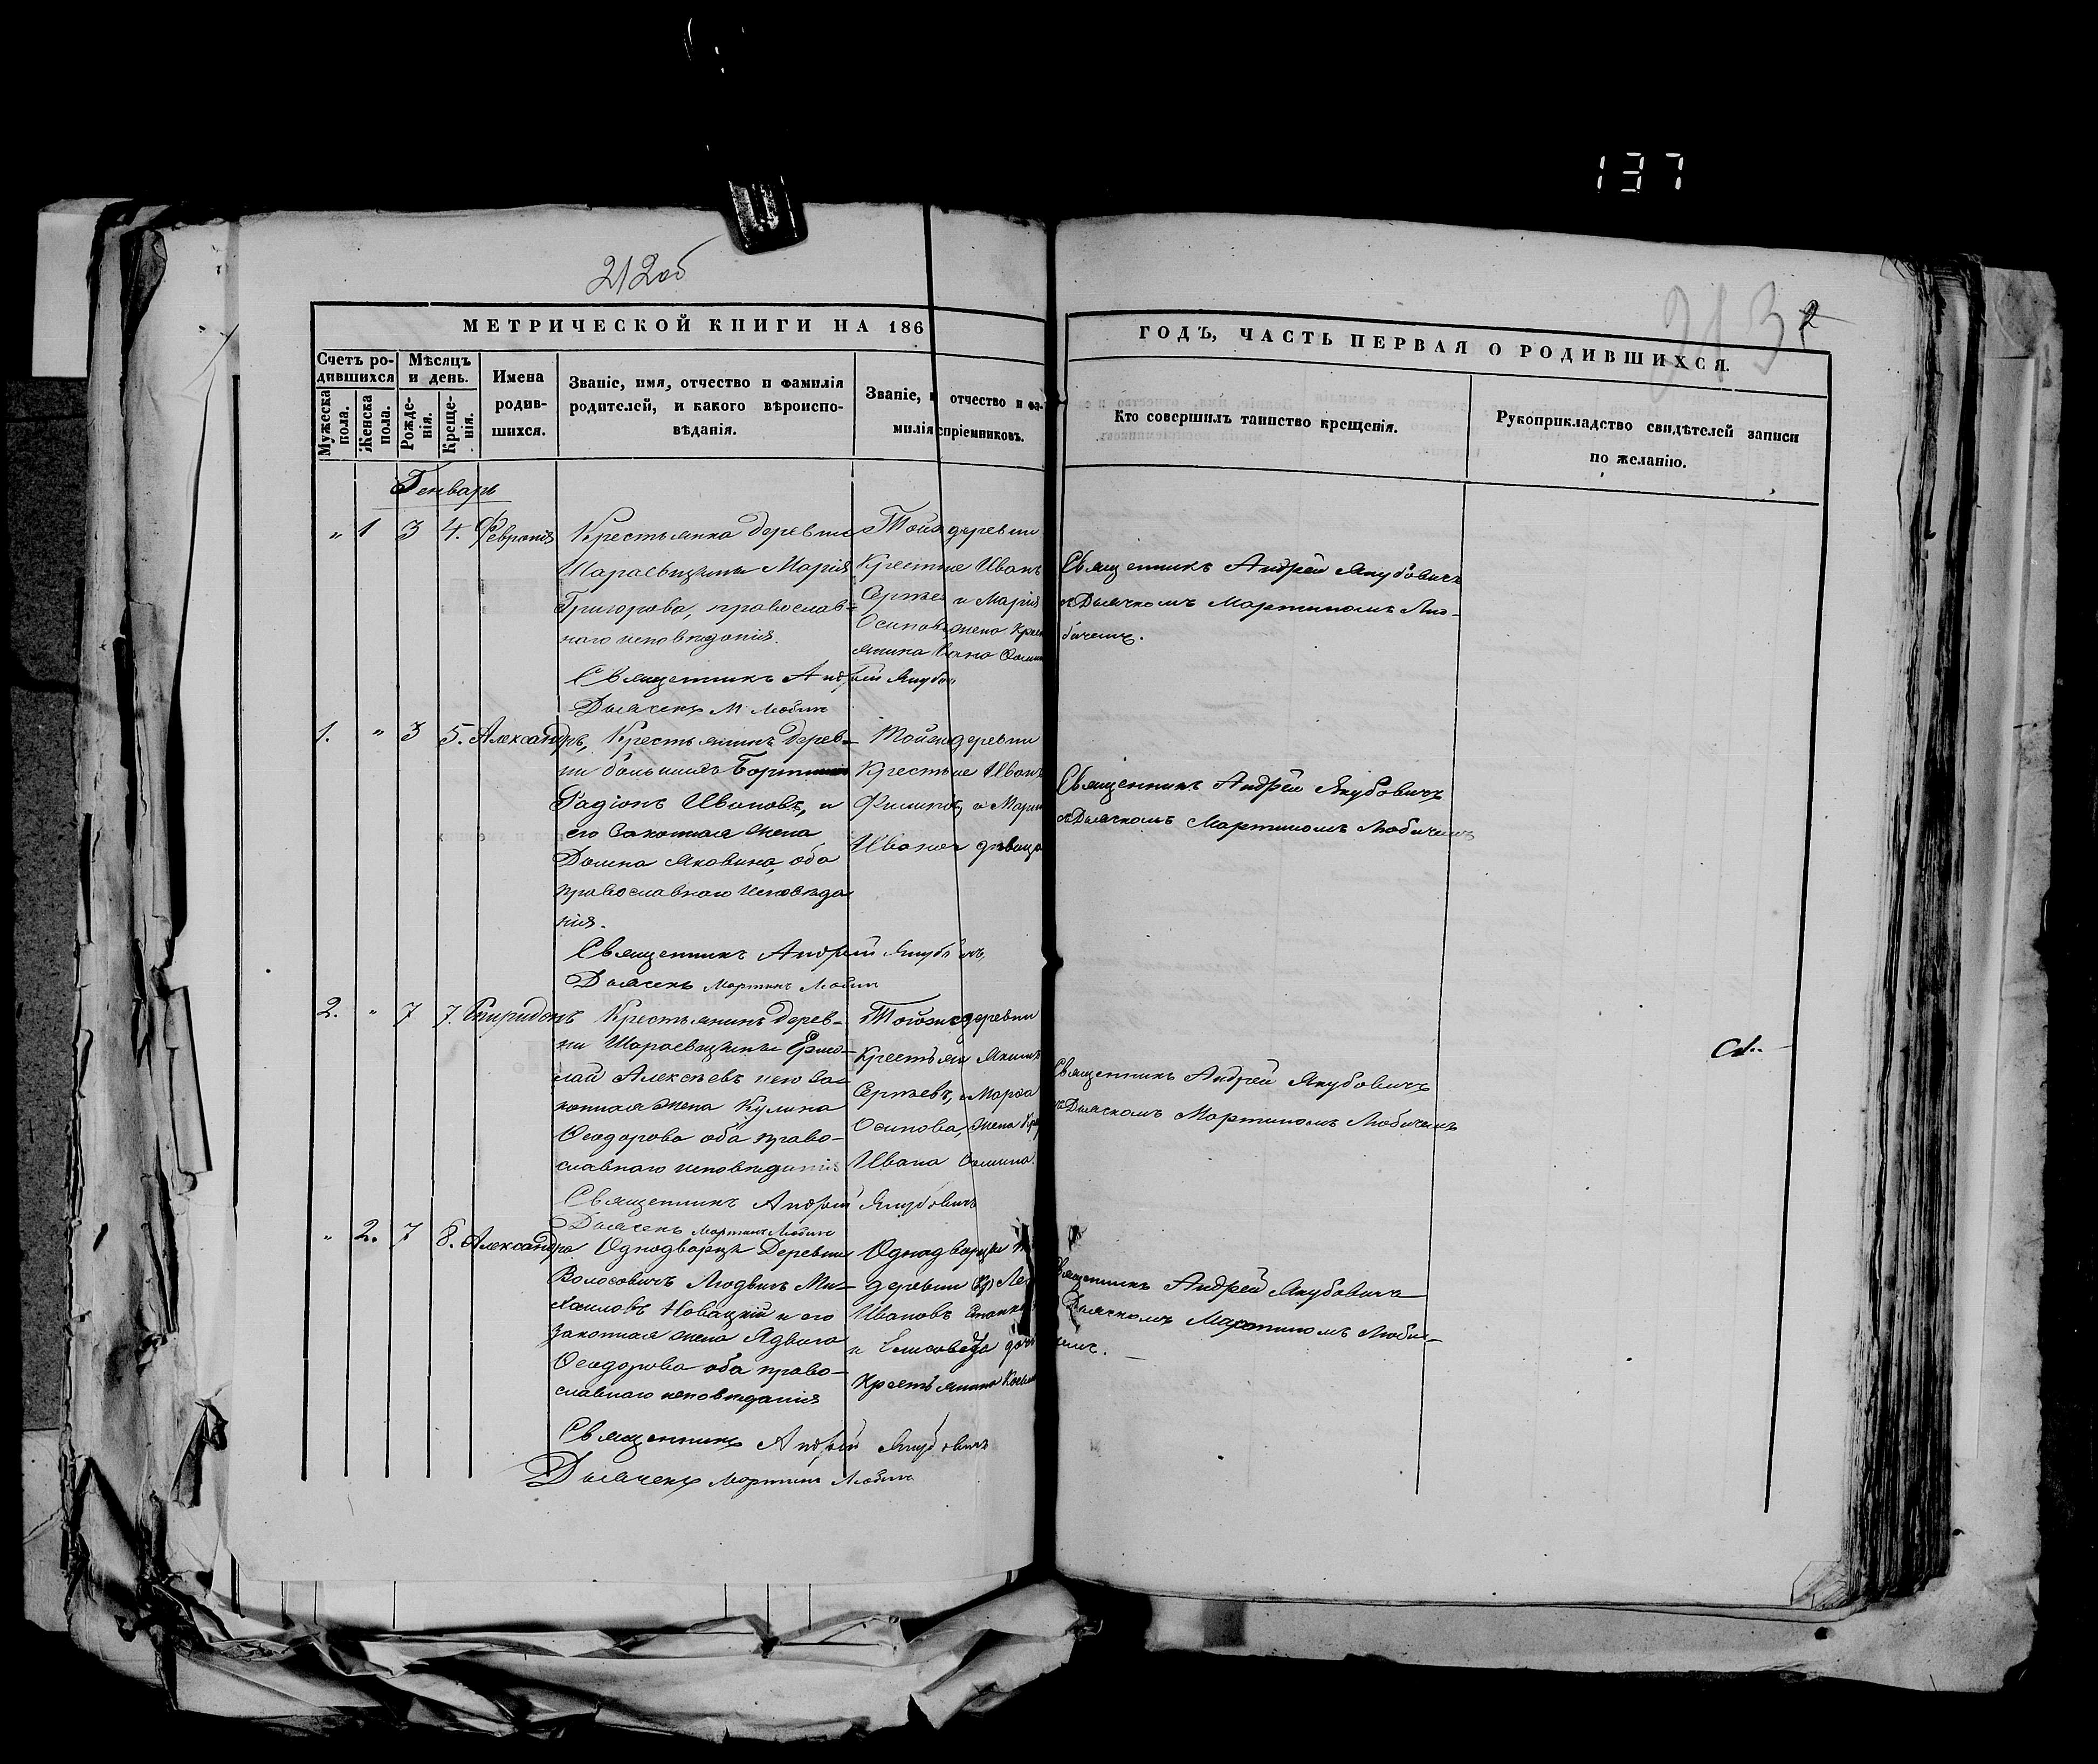 137
212об
213
2
МЕТРИЧЕСКОЙ КНИГИ НА 186
ГОДЪ, ЧАСТЬ ПЕРВАЯ О РОДИВШИХСЯ.
Счетъ ро-
дившихся
Мужеска
пола.
Женска
пола.
Мѣсяцъ
и день.
Рожде-
нія.
Креще-
нія.
Имена
родив-
шихся.
Званіе, имя, отчество и фамилія
родителей, и какого вѣроиспо-
вѣданія.
Званіе, отчество и фа-
милія спріемниковъ.
Кто совершилъ таинство крещенія.
Рукоприкладство свидѣтелей записи
по желанію.
Генварь
" 1 3 4. Февронія
Крестьянка деревни
Марія
Григорова, православ-
наго исповѣданія.
Священникъ Андрей Якубов
Дьячекъ М Любич
Тойж деревни
Иванъ
Сергѣев и Марія
Осипова жена
Священникъ Андрей Якубовичъ
съ Дьячкомъ Мартиномъ Лю-
бичемъ.
1. " 3 5. Александръ,
Крестьянинъ дерев-
ни большихъ
Радіонъ Ивановъ, и
его законная жена
Домна Яковина, оба
православнаго исповѣда
нія.
Священникъ Андрей Якубовичъ
Дьячекъ Мартинъ Любич
Тойже деревни
Крестьне Иванъ
и
Иванов дѣвица
Священникъ Андрей Якубовичъ
съ Дьячкомъ Мартиномъ Любичемъ
2. " 7 7. Спиридонъ
Крестьянинъ дерев-
ни
лай Алексѣевъ и его за-
конная жена Кулина
Ѳеодорова оба право-
славнаго исповѣданія
Священникъ Андрей Якубовичъ
Дьячекъ Мартинъ Любич
Тойже деревни
Крестьян
Сергѣевъ, и Марѳа
Осипова, жена
Ивана
Священникъ Андрей Якубовичъ
съ Дьячкомъ Мартиномъ Любичемъ
" 2. 7 8. Александра
Однодворецъ Деревни
Волосовичъ Людвигъ Ми-
хаиловъ Новацкій и его
законная жена Ядвига
Ѳеодорова оба право-
славнаго исповѣданія
Священникъ Андрей Якубовичъ
Дьячекъ Мартинъ Любич
деревни
Ивановъ
и Елисавета доч
Крестьянина
Священникъ Андрей Якубовичъ
Дьячкомъ Мартиномъ Люби-
чемъ.